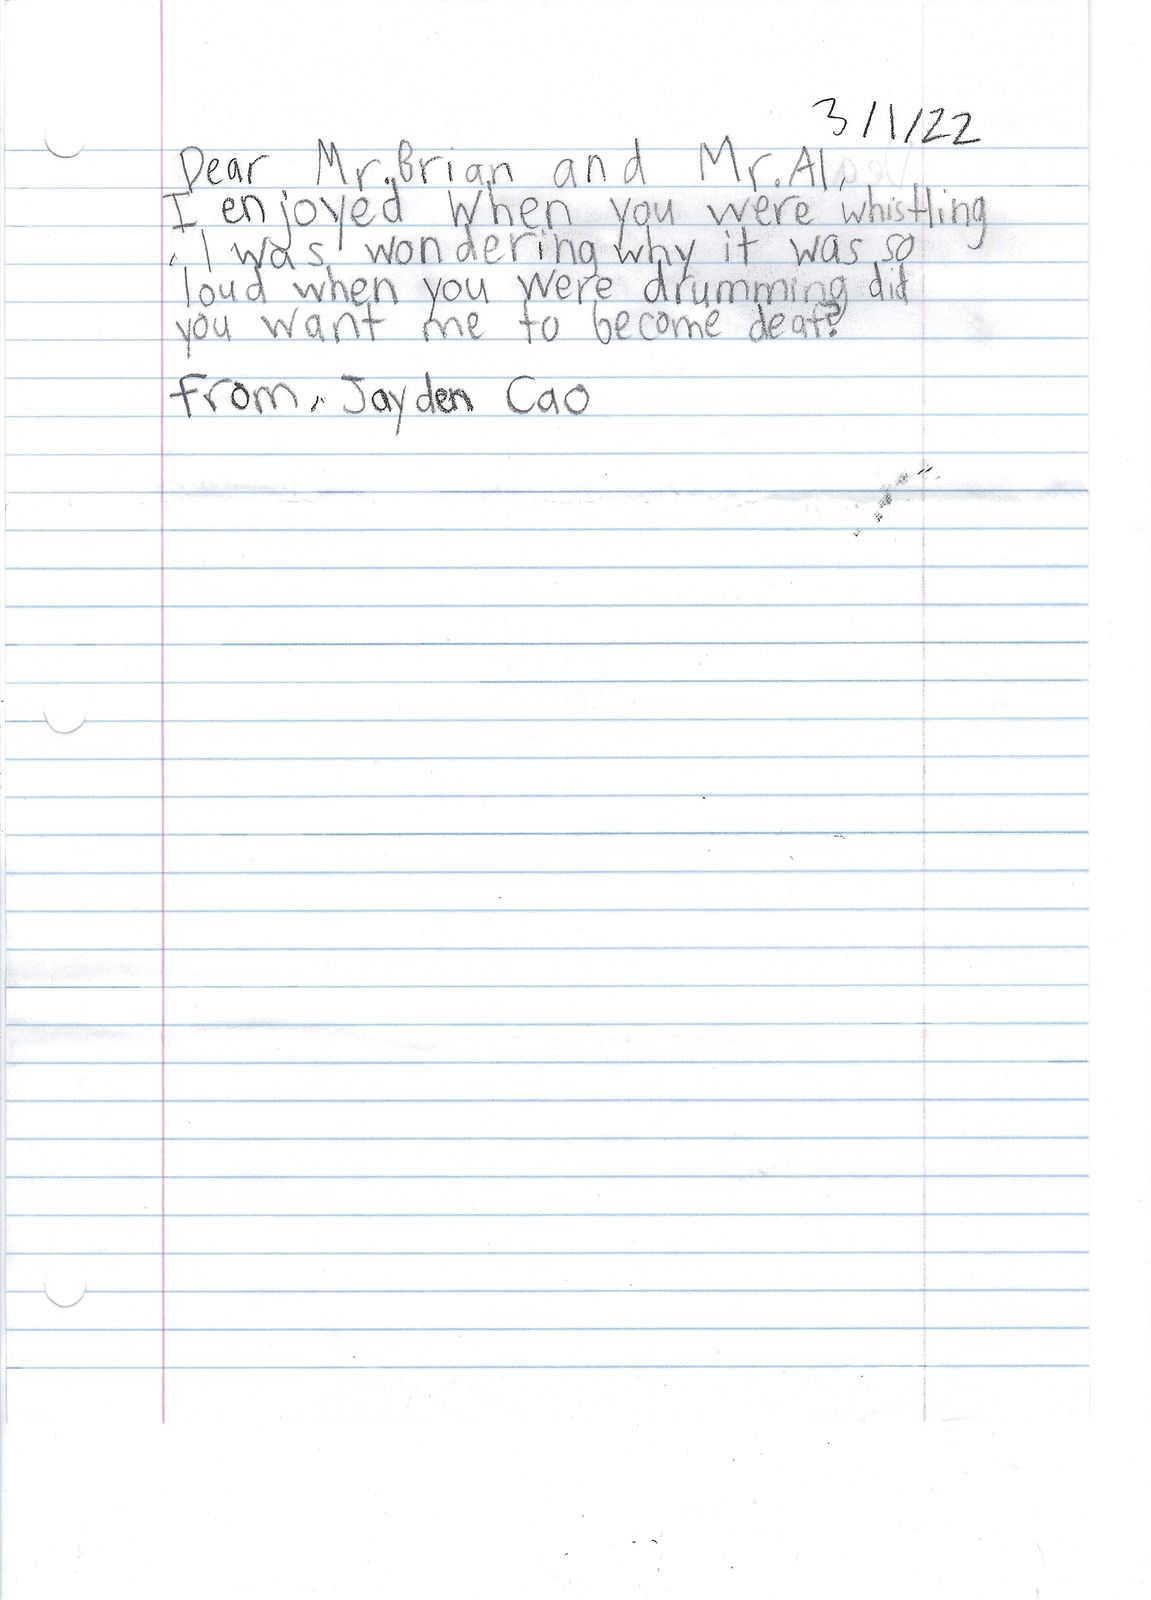 3/1/22
Dear Mr.Brian and Mr.Al,
I enjoyed when you were whistling
, I was wondering why it was so
loud when you were drumming did
you want me to become deaf?
from, Jayden Cao